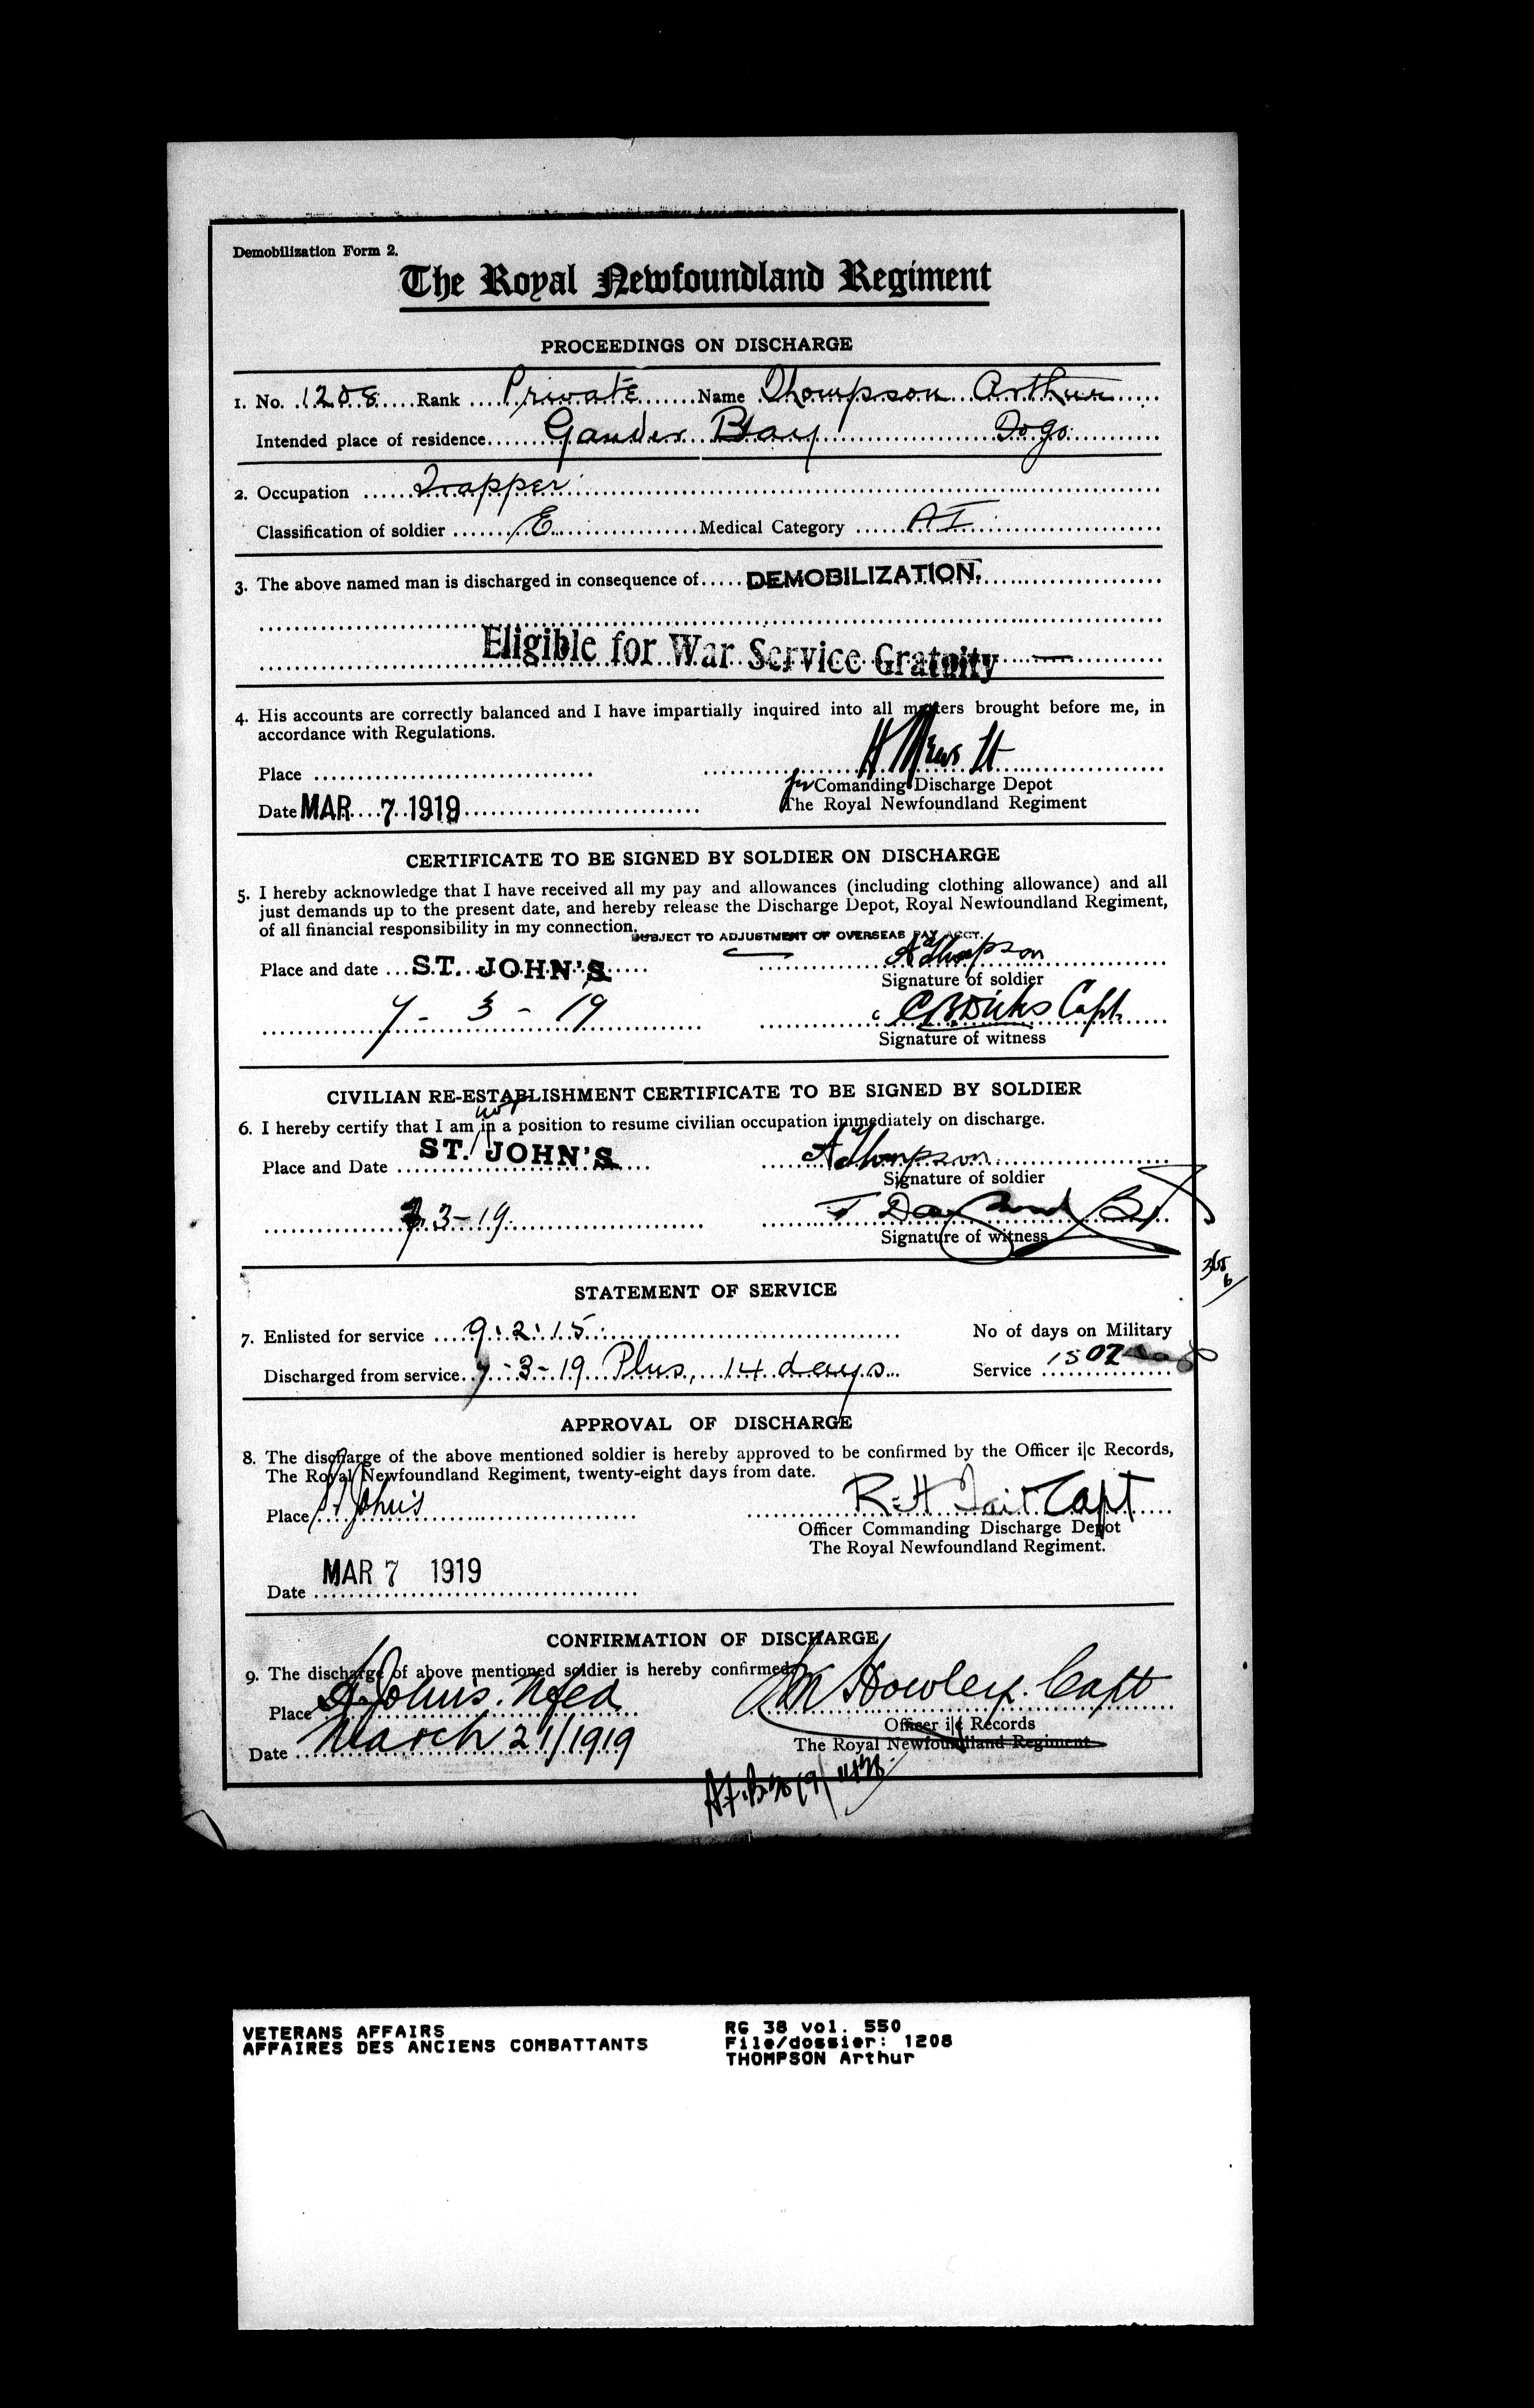 Demobilization Form 2.
The Royal Newfoundland Regiment
PROCEEDINGS ON DISCHARGE
1. No. 1208 Rank Private Name Thompson Arthur
Intended place of residence Gander Bay Fogo
2. Occupation Trapper
Classification of soldier E Medical Category A I
3. The above named man is discharged in consequence of DEMOBILIZATION.
Eligible for War Service Gratuity —
4. His accounts are correctly balanced and I have impartially inquired into all matters brought before me, in
accordance with Regulations.
Place
for Comanding Discharge Depot
Date MAR 7 1919 The Royal Newfoundland Regiment
CERTIFICATE TO BE SIGNED BY SOLDIER ON DISCHARGE
5. I hereby acknowledge that I have received all my pay and allowances (including clothing allowance) and all
just demands up to the present date, and hereby release the Discharge Depot, Royal Newfoundland Regiment,
of all financial responsibility in my connection.
SUBJECT TO ADJUSTMENT OF OVERSEAS PAY ACCT.
Place and date ST. JOHN'S A Thompson
Signature of soldier
7 - 3 - 19 C B Dicks Capt.
Signature of witness
CIVILIAN RE-ESTABLISHMENT CERTIFICATE TO BE SIGNED BY SOLDIER
not
6. I hereby certify that I am in a position to resume civilian occupation immediately on discharge.
Place and Date ST. JOHN'S A Thompson
Signature of soldier
7 3-19
Signature of witness
365
6
STATEMENT OF SERVICE
7. Enlisted for service 9.2.15 No of days on Military
Discharged from service 7-3-19 Plus 14 days Service 1502
APPROVAL OF DISCHARGE
8. The discharge of the above mentioned soldier is hereby approved to be confirmed by the Officer i|c Records,
The Royal Newfoundland Regiment, twenty-eight days from date.
Place St John's R H Tait Capt
Officer Commanding Discharge Depot
The Royal Newfoundland Regiment.
Date MAR 7 1919
CONFIRMATION OF DISCHARGE
9. The discharge of above mentioned soldier is hereby confirmed
Place St John's. Nfld M Howley. Capt
Officer i|c Records
Date March 21/1919 The Royal Newfoundland Regiment
VETERANS AFFAIRS RG 38 vol. 550
AFFAIRES DES ANCIENS COMBATTANTS File/dossier: 1208
THOMPSON Arthur